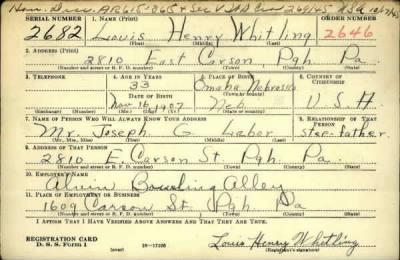 Hon. Disc. AR615-365 + Sec V
SERIAL NUMBER 1. NAME (Print) ORDER NUMBER
2682 Louis Henry Whitling 2646
(First) (Middle) (Last)
2. ADDRESS (Print)
2810 East Carson, Pgh. Pa.
(Number and street or R. F. D. number) (Town) (County) (State)
3. TELEPHONE 4. AGE IN YEARS 5. PLACE OF BIRTH 6. COUNTRY OF CITIZENSHIP
33 Omaha Nebraska
DATE OF BIRTH (Town or county)
Nov 16, 1907 Neb. U. S. A.
(Exchange) (Number) (Mo.) (Day) (Yr.) (State or country)
7. NAME OF PERSON WHO WILL ALWAYS KNOW YOUR ADDRESS 8. RELATIONSHIP OF THAT PERSON
Mr. Joseph G. Labor step-father
(Mr., Mrs., Miss) (First) (Middle) (Last)
9. ADDRESS OF THAT PERSON
2810 E. Carson St. Pgh. Pa.
(Number and street or R. F. D. number) (Town) (County) (State)
10. EMPLOYER'S NAME
Alvin Bowling Alley
11. PLACE OF EMPLOYMENT OR BUSINESS
1609 Carson St. Pgh Pa
(Number and street or R. F. D. number) (Town) (County) (State)
I AFFIRM THAT I HAVE VERIFIED ABOVE ANSWERS AND THAT THEY ARE TRUE.
REGISTRATION CARD
D. S. S. Form 1 (over) 16-17105 Louis Henry Whitling
(Registrant's signature)